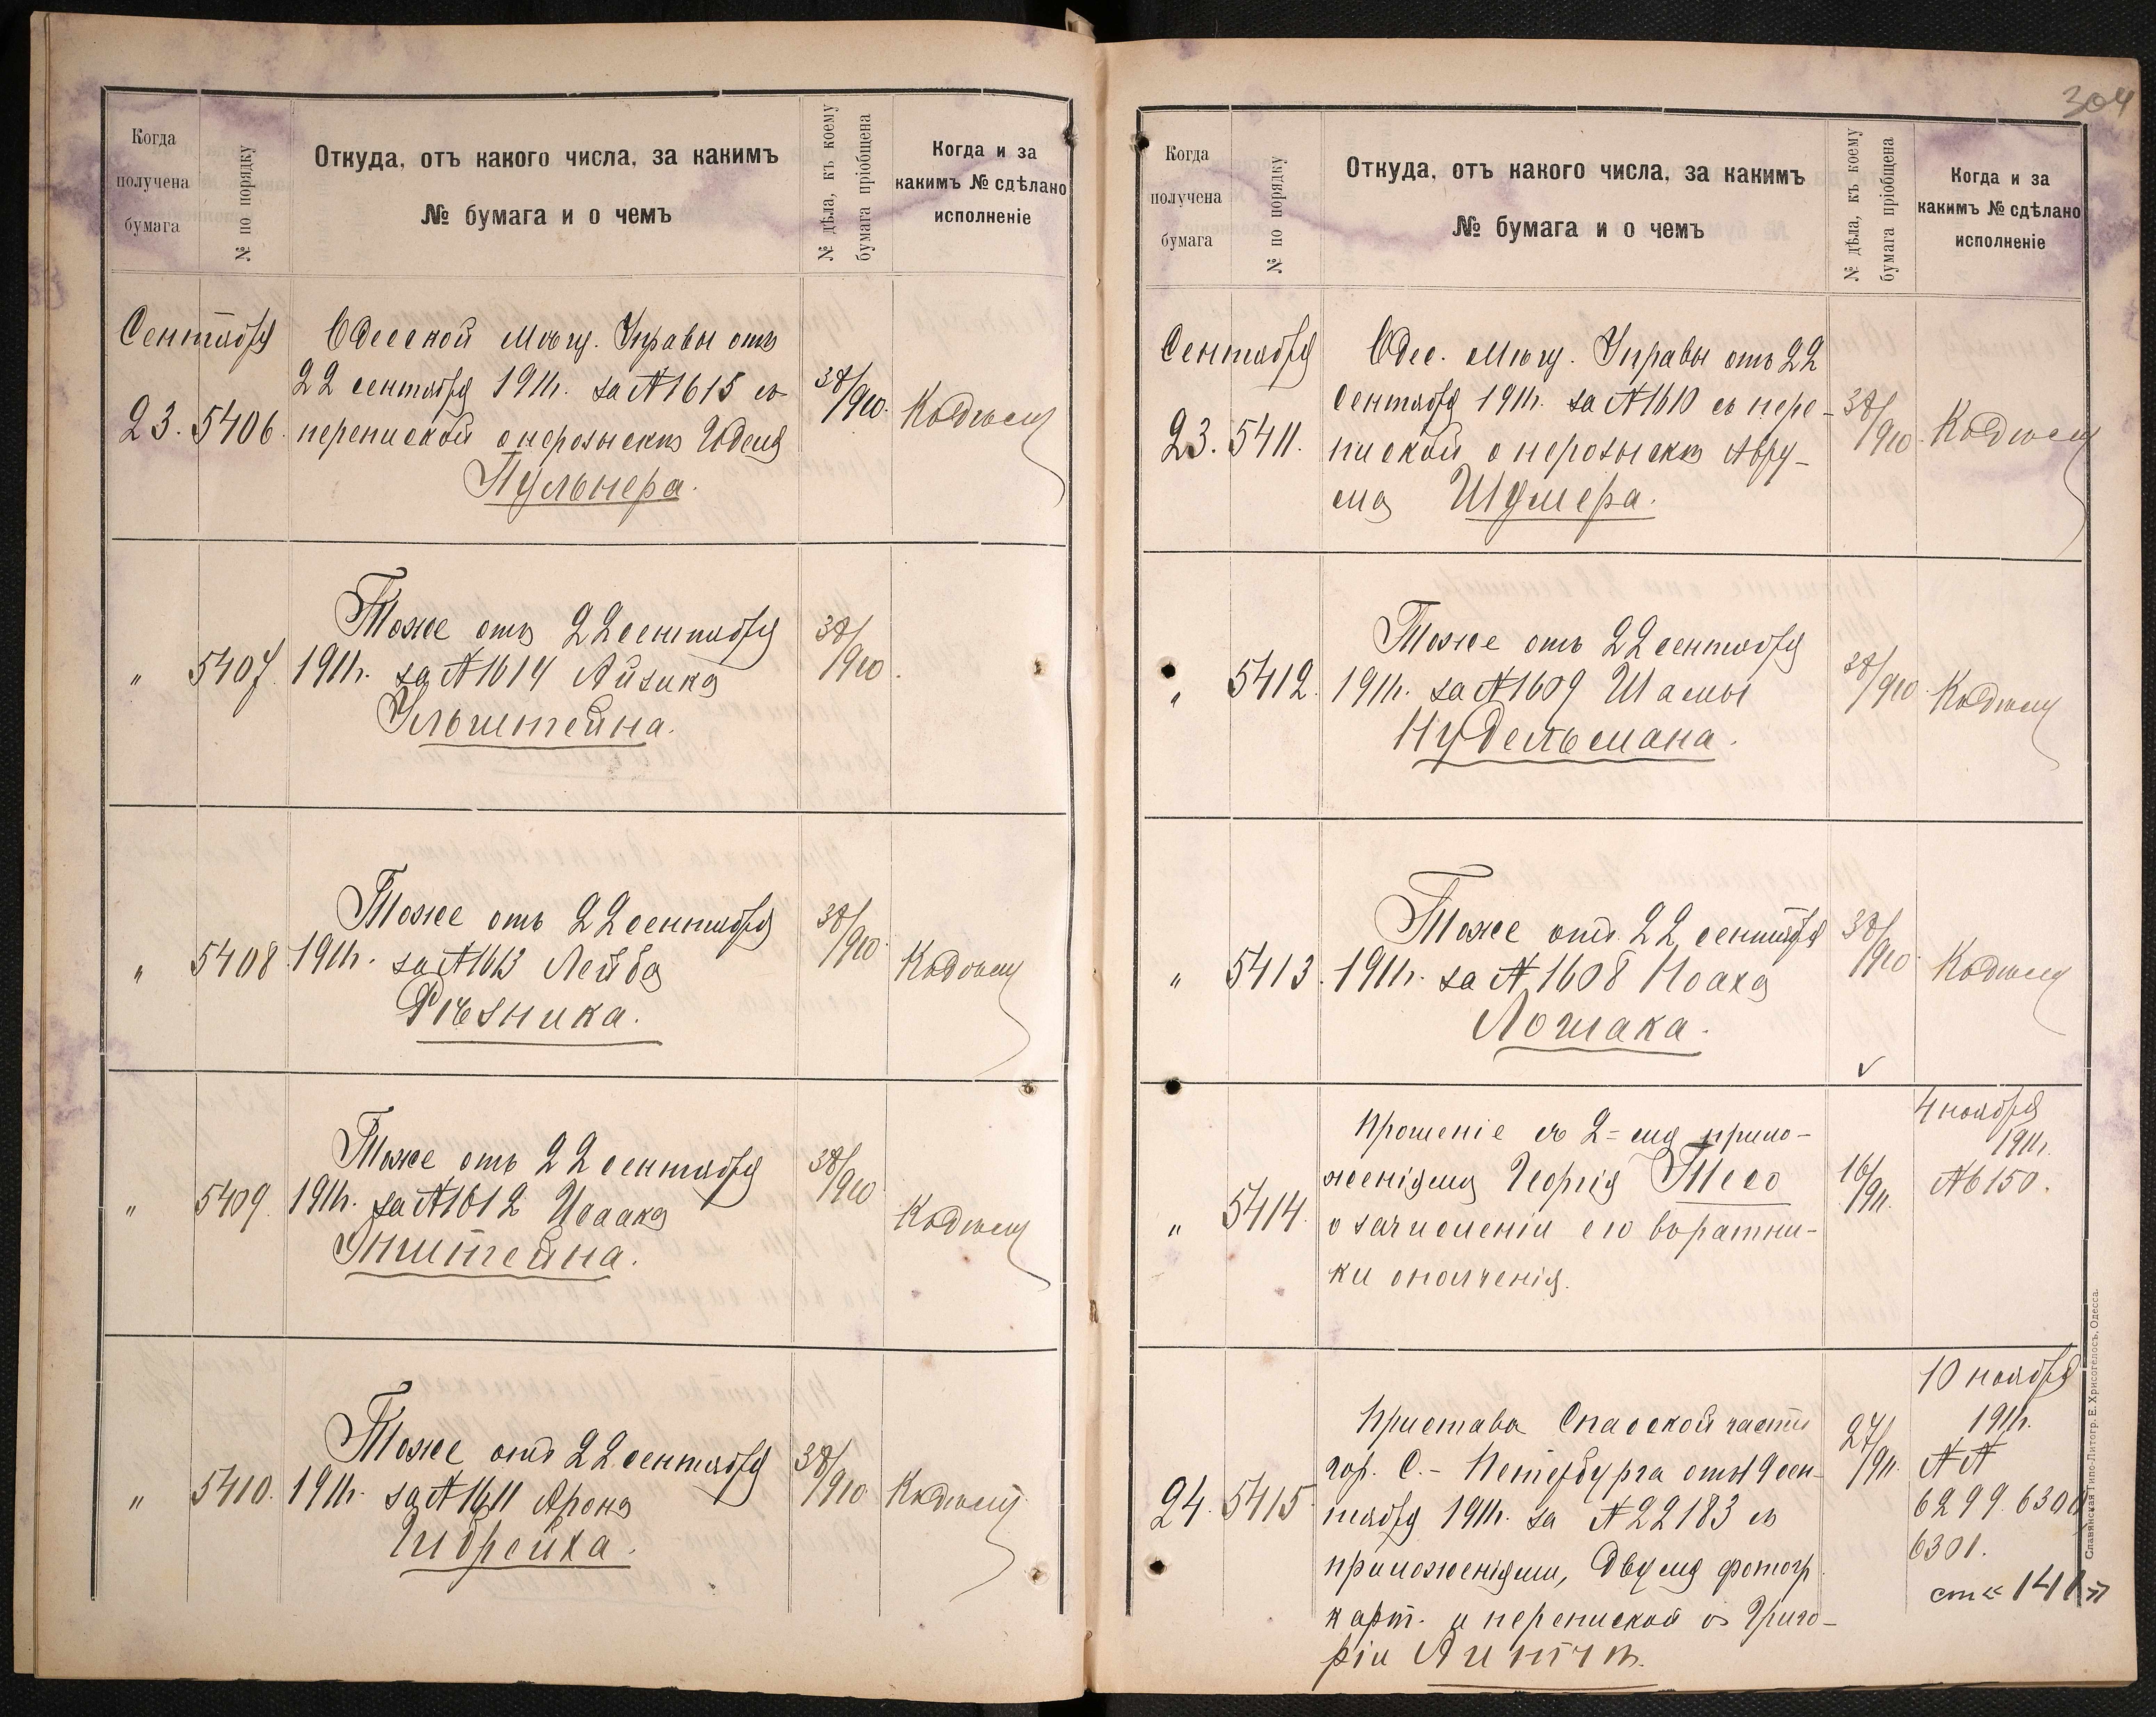 304
Когда
получена
бумага
№ по порядку
Откуда, отъ какого числа, за какимъ
№ бумага и о чемъ
№ дѣла, къ коему
бумага пріобщена
Когда и за
какимъ № сдѣлано
исполненіе
Сентября
Одесской Мѣщ. Управы отъ
22 сентября 1911г. за № 1615 съ
38/910.
23. 5406. перепиской о нерозыскѣ Иделя
Пульнера.
Къ дѣлу
Тоже отъ 22 сентября
38/910.
" 5407. 1911г. за № 1614 Айзика
Ульштейна.
Тоже отъ 22 сентября
38/910.
" 5408. 1911г. за № 1613 Лейба
Къ дѣлу
Рѣзника.
Тоже отъ 22 сентября
38/910
" 5409. 1911г. за № 1612 Исаака
Къ дѣлу
Эпштейна.
Тоже отъ 22 сентября
38/910
" 5410. 1911г. за № 1611 Арона
Къ дѣлу
Когда
получена
бумага
№ по порядку
Откуда, отъ какого числа, за какимъ
№ бумага и о чемъ
№ дѣла, къ коему
бумага пріобщена
Когда и за
какимъ № сдѣлано
исполненіе
Сентября
Одес. Мѣщ. Управы отъ 22
сентября 1911г. за № 1610 съ пере-
38/910.
Къ дѣлу
23. 5411. пиской о нерозыскѣ Авру-
ма Шумера.
Тоже отъ 22 сентября
38/910.
" 5412. 1911г. за № 1609 Шамы
Къ дѣлу
Нудельмана.
Тоже отъ 22 сентября
38/910.
" 5413. 1911г. за № 1608 Ноаха
Къ дѣлу
Лошака.
4 ноября
1911г.
№ 6150.
Прошеніе съ 2=мя прило-
женіями Георгія Тесо
16/911.
" 5414. о зачисленіи его въ ратни-
ки ополченія.
10 ноября
1911г.
№ №
6299. 6300
6301.
ст «141»
Пристава Спасской части
27/911.
гор. С.-Петербурга отъ 19 сен-
24. 5415 тября 1911г. за № 22183 съ
приложеніями, двумя фотогр
карт. и перепиской о Григо-
ріи
Славянская Типо-Литогр. Е. Хрисогелосъ, Одесса.